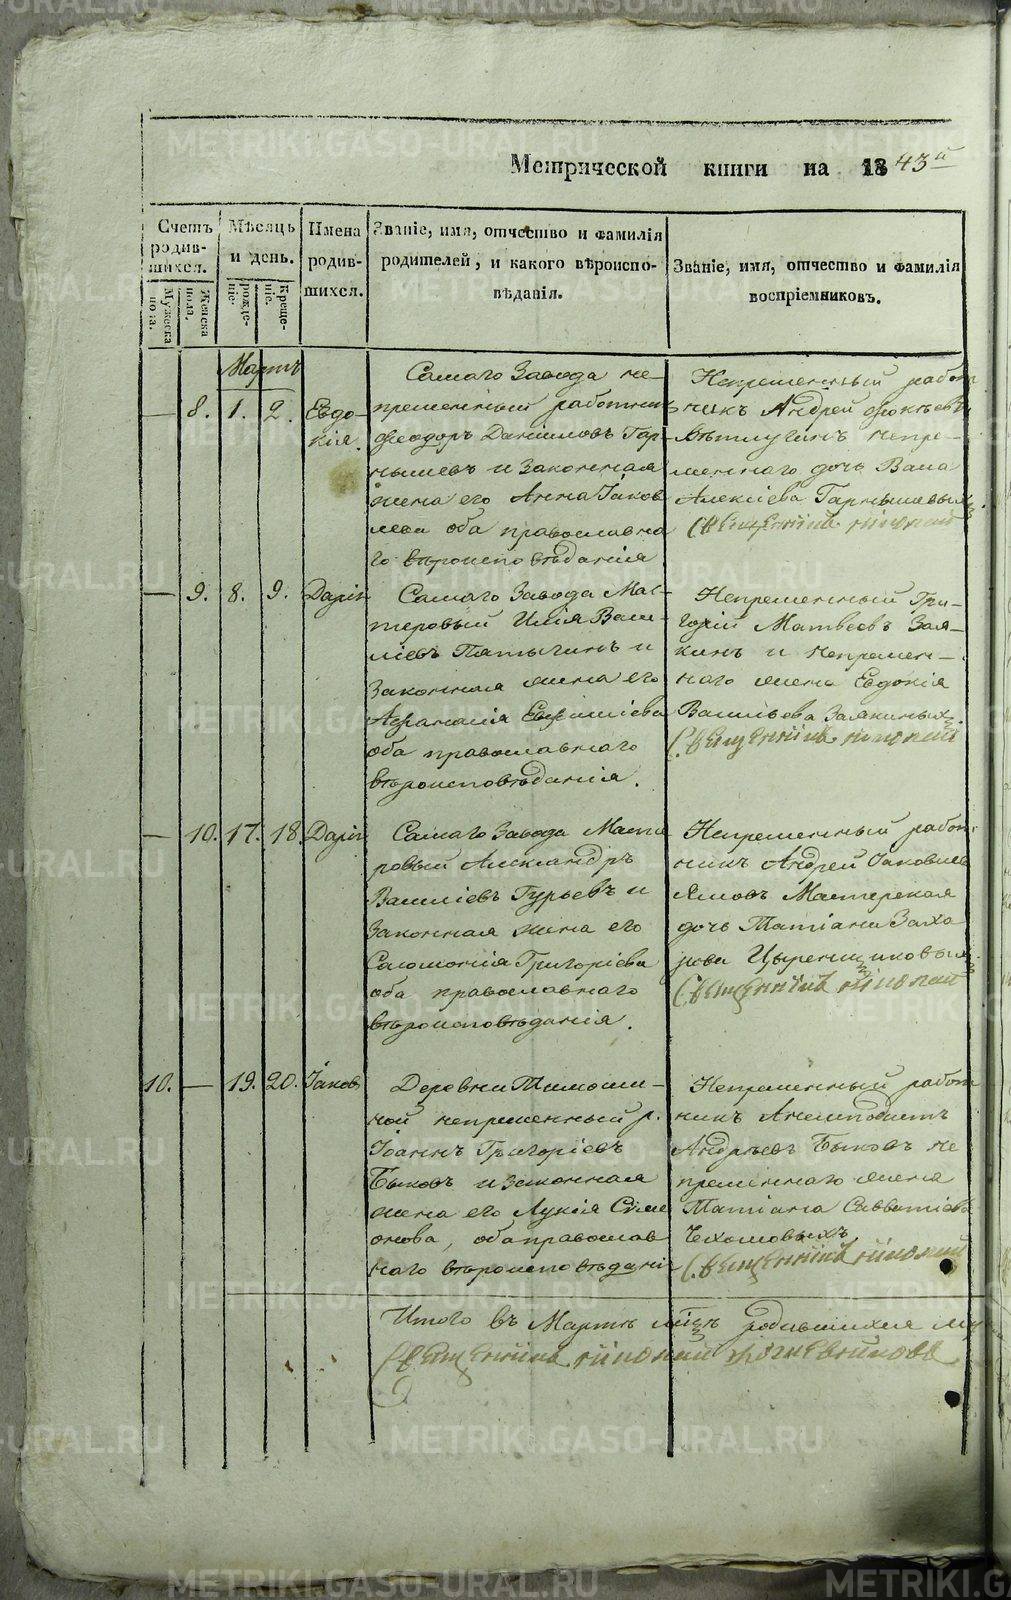 METRIKI.GASO-URAL.RU
Метрической книги на 1843й
Счетъ родив-шихся.
Мужеска пола.
Женска пола.
Мѣсяцъ и день.
рожде-ніе.
Креще-ніе.
Имена родив-шихся.
Званіе, имя, отчество и фамилія
родителей, и какого вѣроиспо-
вѣданія.
Званіе, имя, отчество и фамилія
воспріемниковъ.
Мартъ
— 8. 1. 2. Евдо-
кія.
Самаго Завода не-
премѣнный работникъ
Ѳеодоръ Даніиловъ Гар-
нышевъ и законная
жена его Анна Іаков
лева оба православна
го вѣроисповѣданія
Непременный работ
никъ Андрей
непре-
меннаго дочь
Алексіева Гарнышевыхъ
Священникъ
— 9. 8. 9. Дарія
Самаго Завода Мас-
теровый Илія Васи-
ліевъ Пятыгинъ и
законная жена его
Афанасія Евфиміева
оба православнаго
вѣроисповѣданія.
Непременный Гри-
горій Матвеевъ Заля-
кинъ и непремен-
наго жена Евдокія
Васильева Залякиныхъ.
Священникъ
— 10. 17. 18. Дарія
Самаго Завода Масте
ровый Александръ
Василіевъ Гурьевъ и
законная жена его
Саломонія Григоріева
оба православнаго
вѣроисповѣданія.
Непременный работ
никъ Андрей Іаковлев
Мастерская
дочь Татіана Заха
рова
Священникъ
10. — 19. 20. Іаковъ
Деревни Тимоши-
ной непременный р.
Іоаннъ Григоріевъ
Быковъ и законная
жена его Лукія Симе
онова, оба православ
наго вѣроисповѣдані-
Непременный работ
никъ Анемподистъ
Андреевъ Быковъ не
премѣннаго жена
Татіана Савватіева
Священникъ
Итого въ Мартѣ мѣсяцѣ родившихся му
Священникъ